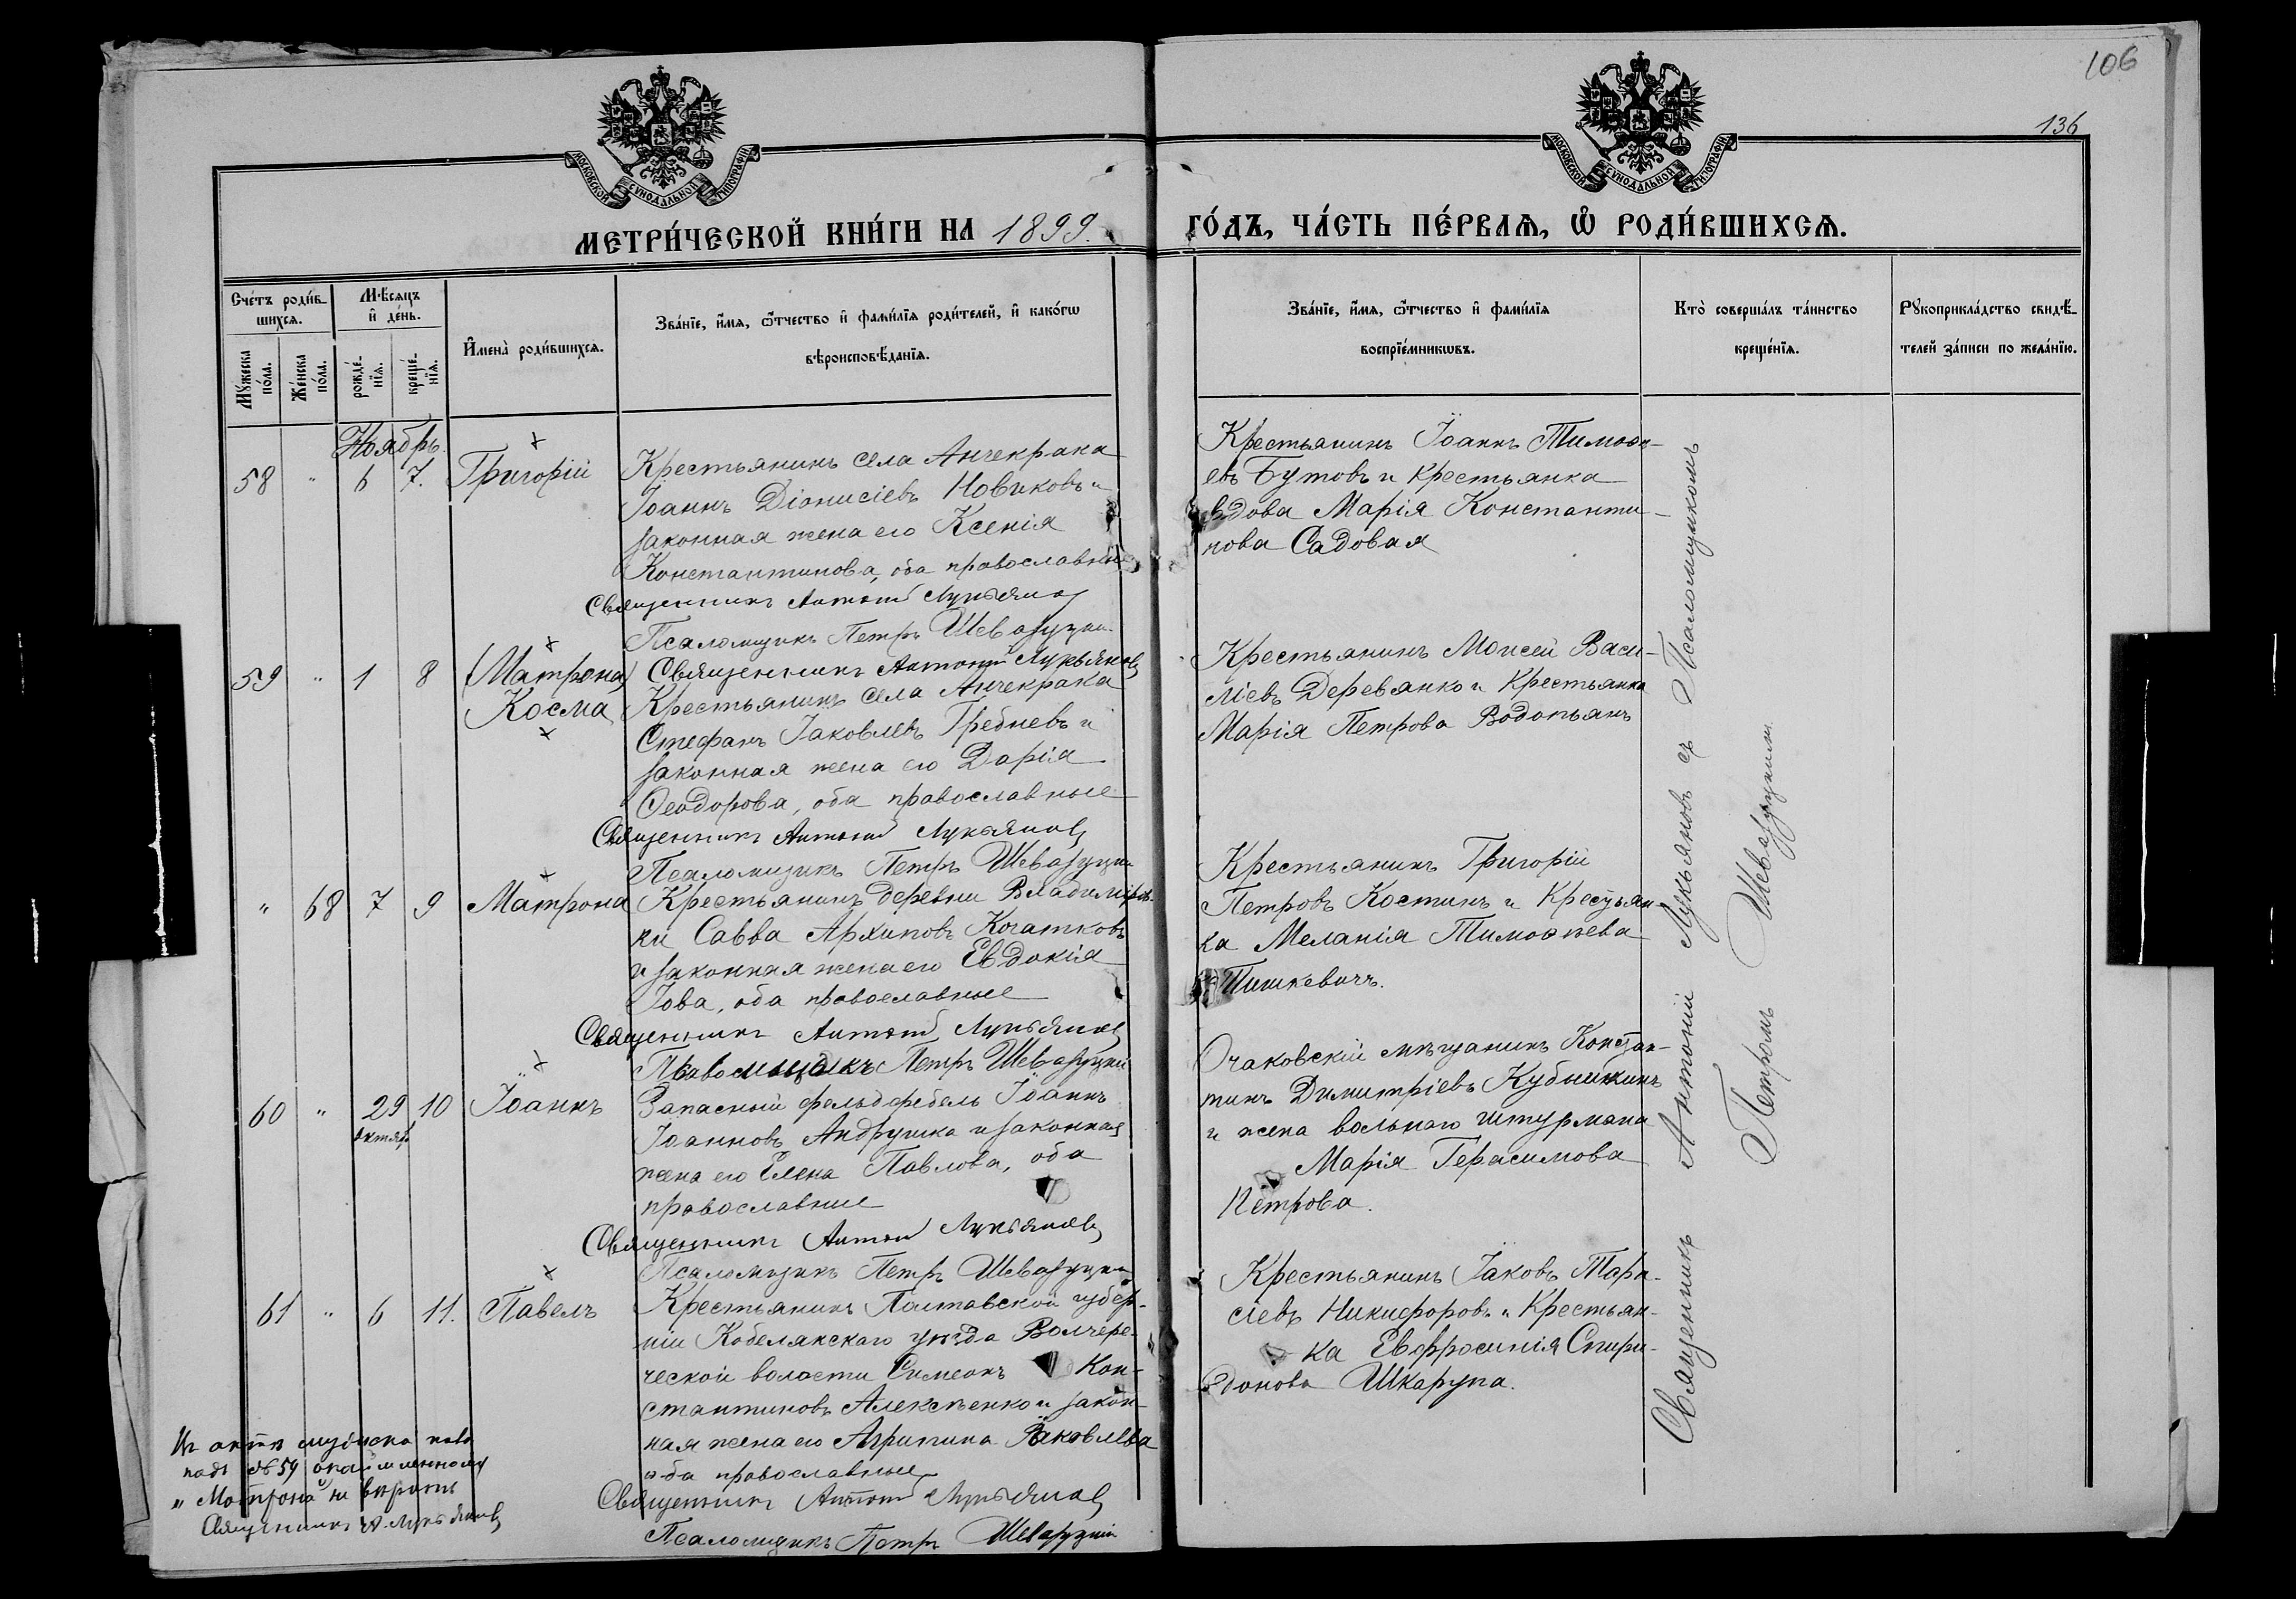 106
136
МОСКОВСКОЙ СѴНОДАЛЬНОЙ ТИПОГРАФІИ
МОСКОВСКОЙ СѴНОДАЛЬНОЙ ТИПОГРАФІИ
МЕТРИ́ЧЕСКОЙ КНИ́ГИ НА 1899. ГО́ДЪ, ЧА́СТЬ ПЕ́РВАѦ, Ѽ РОДИ́ВШИХСѦ.
Сче́тъ роди́в-
шихсѧ.
Мѣ́сѧцъ
и҆ де́нь.
Мꙋ́жеска по́ла.
Же́нска по́ла.
рожде́-нїѧ.
креще́-нїѧ.
И҆мена̀ роди́вшихсѧ.
Зва́нїе, и҆́мѧ, ѻ҆́тчество и҆ фами́лїѧ роди́телей, и҆ како́гѡ
вѣроисповѣ́данїѧ.
Зва́нїе, и҆́мѧ, ѻ҆́тчество и҆ фами́лїѧ
воспрїе́мникѡвъ.
Кто̀ соверша́лъ та́инство
креще́нїѧ.
Рꙋкоприкла́дство свидѣ́-
телей за́писи по жела́нїю.
Ноябрь
58 " 6 7. Григорій
Крестьянинъ села Анчекрака
Іоаннъ Діонисіевъ Новиковъ и
законная жена его Ксенія
Константинова, оба православные
Священникъ Антоній Лукьянов
Псаломщикъ Петръ Шеварузкій
Крестьянинъ Іоаннъ Тимоѳе-
евъ Бутовъ и крестьянка
вдова Марія Константи-
нова Садовая
59 " 1 8 (Матрона)
Косма
Священникъ Антоній Лукьяновъ
Крестьянинъ села Анчекрака
Стефанъ Іаковлевъ Гребневъ и
законная жена его Дарія
Ѳеодорова, оба православные
Священникъ Антоній Лукьяновъ
Псаломщикъ Петръ Шеварузкій
Крестьянинъ Моисей Васи-
ліевъ Деревянко и крестьянка
Марія Петрова Водопьянъ
" 68 7 9 Матрона
Крестьянинъ деревни Владиміров-
ки Савва Архиповъ Кочатковъ
и законная жена его Евдокія
Іова, оба православные
Священникъ Антоній Лукьяновъ
Псаломщикъ Петръ Шеварузкій
Крестьянинъ Григорій
Петровъ Костинъ и крестьян-
ка Меланія Тимоѳеева
Пишкевичъ.
60 " 29 10 Іоаннъ
Октяб
Запасный фельдфебель Іоаннъ
Іоанновъ Андрушка и законная
жена его Елена Павлова, оба
православные
Священникъ Антоній Лукьяновъ
Псаломщикъ Петръ Шеварузкій
Очаковскій мѣщанинъ Констан-
тинъ Димитріевъ Кубышкинъ
и жена вольнаго штурмана
Марія Герасимова
Петрова.
61 " 6 11. Павелъ
Крестьянинъ Полтавской губер-
ніи Кобелякскаго уѣзда Волчере-
ческой волости Симеонъ Кон-
стантиновъ Алексѣенко и закон-
ная жена его Агрипина Іаковлева
оба православные
Священникъ Антоній Лукьяновъ
Псаломщикъ Петръ Шеварузкій
Крестьянинъ Іаковъ Тара-
сіевъ Никифоровъ и крестьян-
ка Евфросинія Спири-
донова Шкарупа.
Священникъ Антоній Лукьяновъ съ Псаломщикомъ
Петромъ Шеварузкимъ
мужеска пола
подъ № 59
"Матрона" не вѣрить
Священникъ А. Лукьяновъ